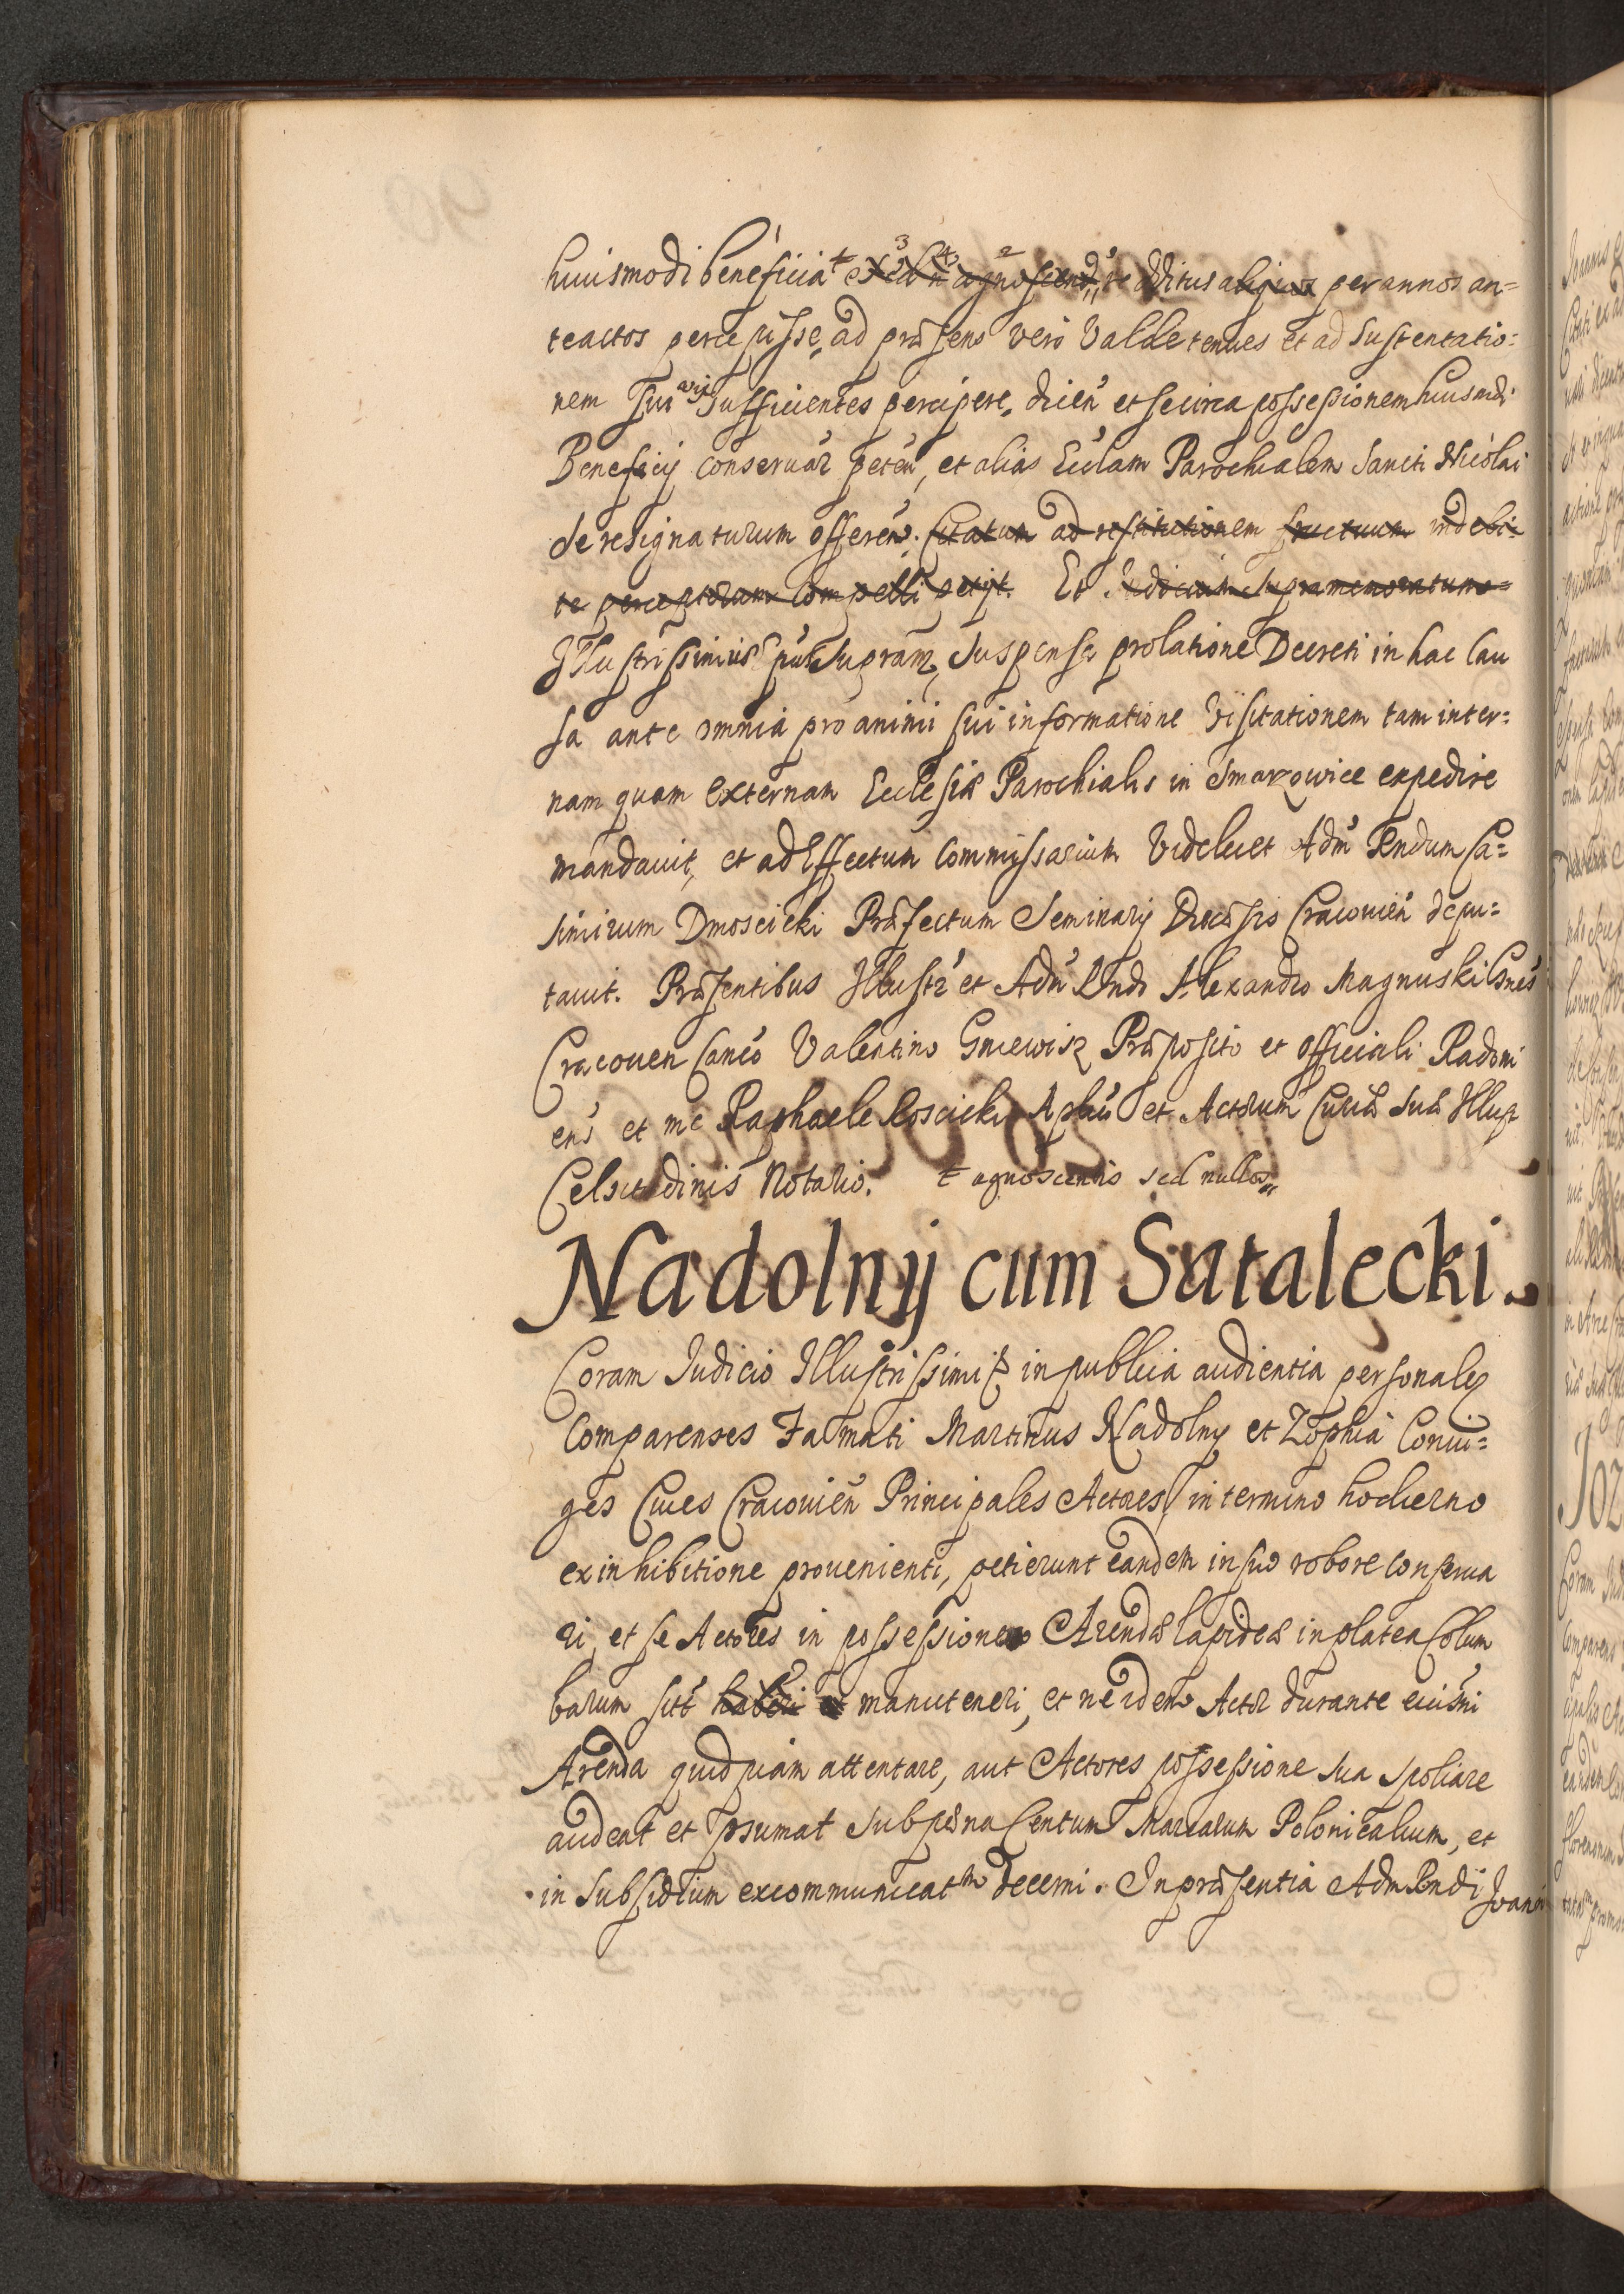 huiusmodi beneficia redditus aliquos per annos an=
teactos percepisse, ad præsens vero Valde tenues et ad Sustentatio=
nem sui vix sufficientes percipere, dicen̄ et se circa possessionem huiusmdi
Beneficij conseruār peten̄, et alias Ecclam Parochialem Sancti Nicolai
se resignaturum offeren̄. Citatum ad restitutionem fructuum indebi=
te perceptorum compelli petijt. Et Iudicium Supramemoratum
Illustrissimus suspensa prolatione Decreti in hac Cau
sa ante omnia pro animi sui informatione Visitationem tam inter=
nam quam externam Ecclesiæ Parochialis in Smarzowice expedire
mandauit, et ad Effectum Commissarium Videlicet Adm̄ Rendum Ca=
simirum Dmoscicki Præfectum Seminarij Diæcesis Cracouien̄ depu=
tauit. Præsentibus Illustr̄ et Adm̄ Rndo Alexandro Magnuski
Cracouen Canco Valentino Gniewisz Præposito et officiali Radomi
en̄s et me Raphaele Roscicki Aplico et Actorum Curiæ Suæ Illusr
Celsitudinis Notario. † agnoscentis sed nullos
Nadolnij cum Satalecki.
Coram Iudicio Illustrissimi in publica audientia personalr
Comparenses Famati Martinus Nadolny et Zophia Coniu=
ges Ciues Cracouien̄ Principales Actores, in termino hodierno
ex inhibitione prouenienti, petierunt eandem in suo robore conserua
ri, et se Actores in possessione Arendæ lapideæ in platea Colum
barum sit̄ haberi et manuteneri, et ne idem Actor durante eiusmi
Arenda quidpiam attentare, aut Actores possessione sua spoliare
audeat et psumat sub pæna Centum Marcarum Polonicalium, et
in subsidium excommunicat͞n decerni. In præsentia Adm Rndi Joan